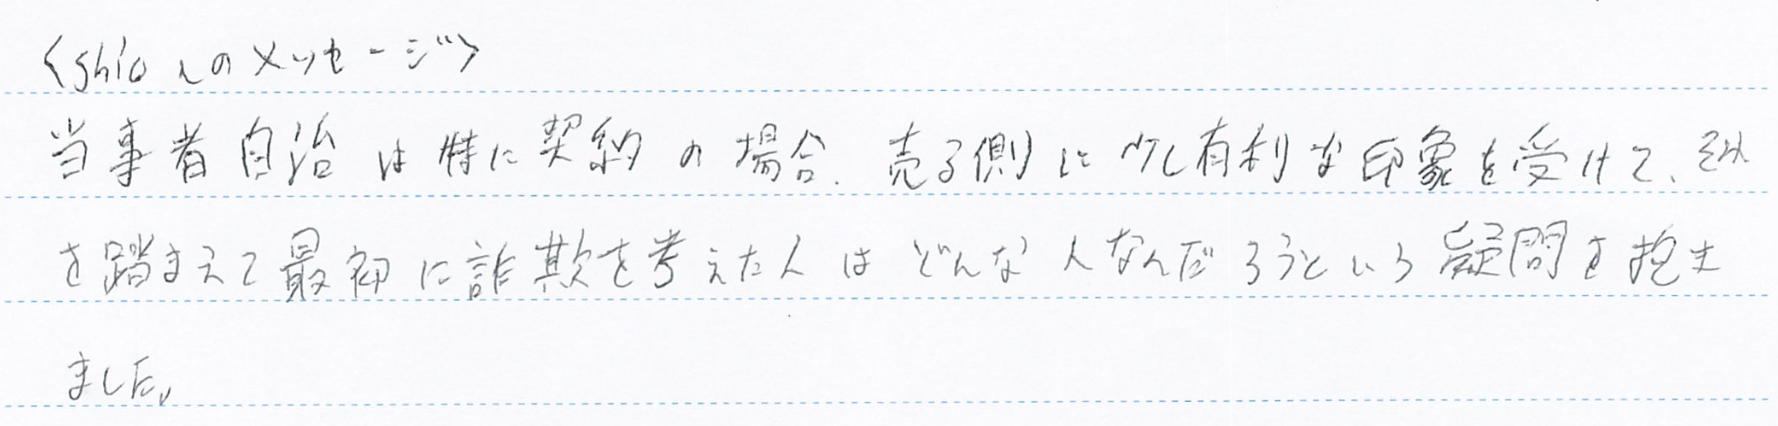 <shioんのメッセージ>
当事者自治は特に契約の場合、売る側に少し有利な印象を受けて、それ
を踏まえて最初に詐欺を考えた人はどんな人なんだろうという疑問を抱き
ました。